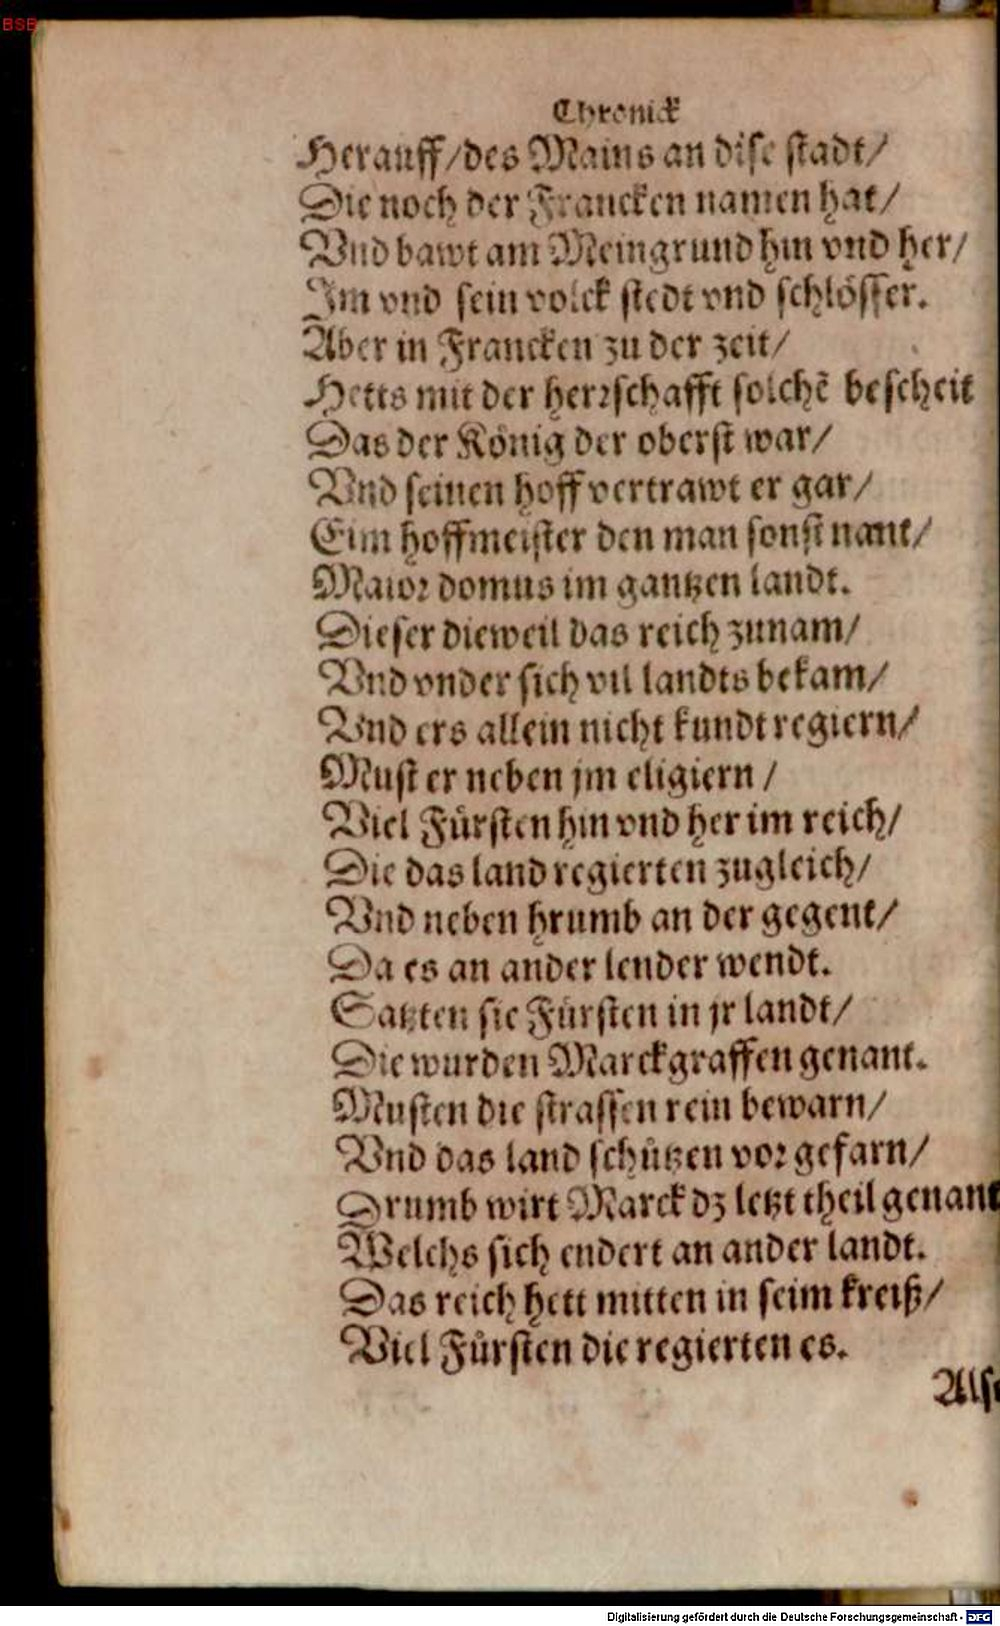 BSB
Chronick
Herauff/des Mains an dise stadt/
Die noch der Francken namen hat/
Vnd bawt am Meingrund hin vnd her/
Im vnd sein volck stedt vnd schlösser.
Aber in Francken zu der zeit/
Hetts mit der herrschafft solchē bescheit
Das der König der oberst war/
Vnd seinen hoff vertrawt er gar/
Eim hoffmeister den man sonst nant/
Maior domus im gantzen landt.
Dieser dieweil das reich zunam/
Vnd vnder sich vil landts bekam/
Vnd ers allein nicht kundt regiern/
Must er neben jm eligiern /
Viel Fürsten hin vnd her im reich/
Die das land regierten zugleich/
Vnd neben hrumb an der gegent/
Da es an ander lender wendt.
Satzten sie Fürsten in jr landt/
Die wurden Marckgraffen genant.
Musten die strassen rein bewarn/
Vnd das land schützen vor gefarn/
Drumb wirt Marck dz letzt theil genant
Welchs sich endert an ander landt.
Das reich hett mitten in seim kreiß/
Viel Fürsten die regierten es.
Also
Digitalisierung gefördert durch die Deutsche Forschungsgemeinschaft - DFG